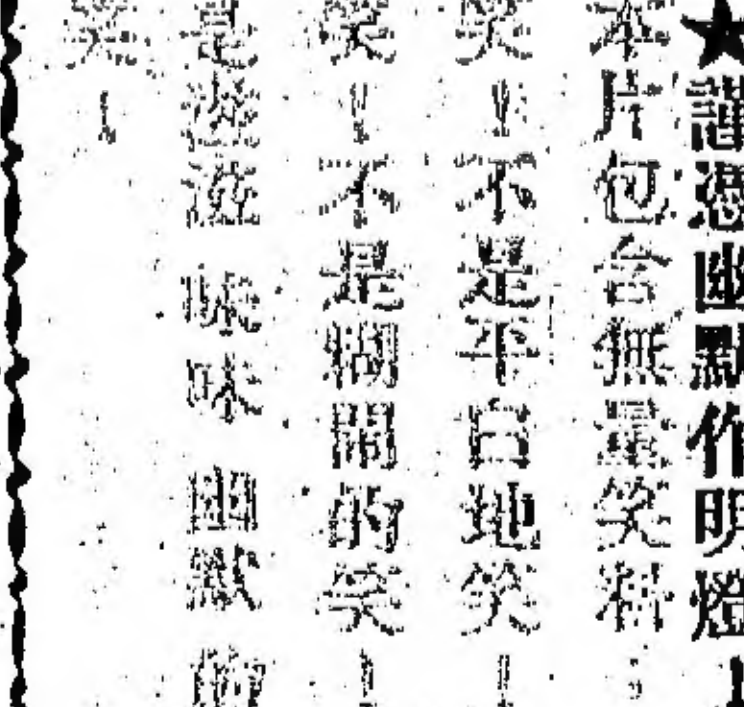 ★謹憑幽默作明燈！
本片包含無量笑料：
笑！不是平白地笑！
笑！不是糊鬧的笑！
是滋滋味味幽默的
笑！